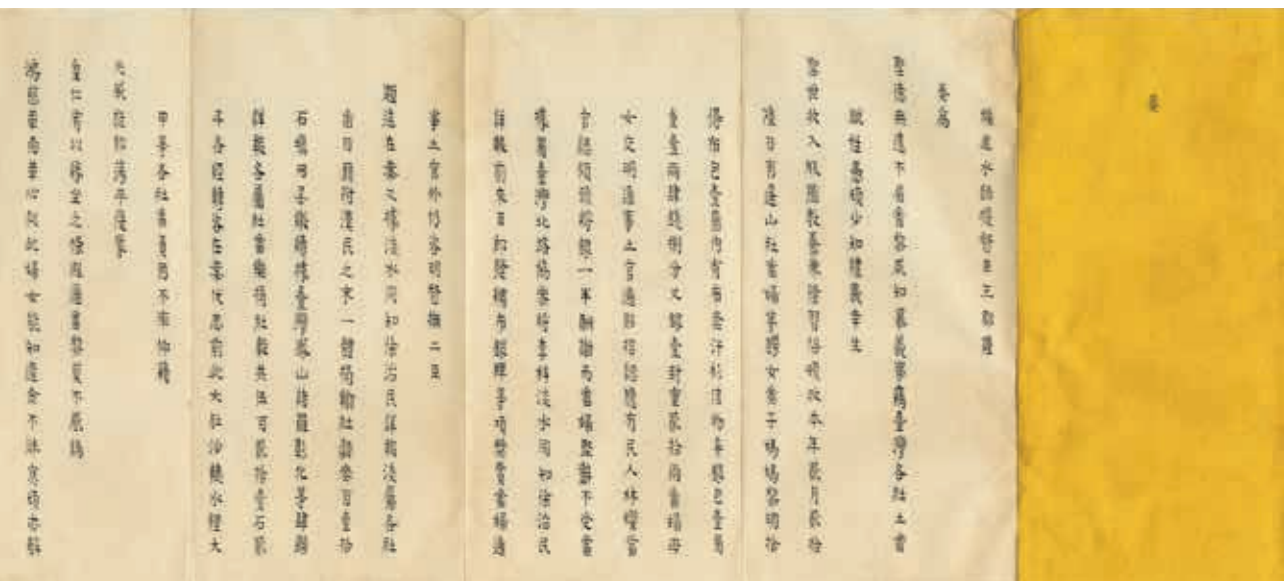 奏
福建水師提督臣王郡謹
奏為
聖德無遠不屆番黎咸知慕義事竊臺灣各社土番
賦性愚頑少知禮義幸生
聖世收入版圖教養兼隆習俗頓改本年貳月貳拾
陸日有蓬山社番婦女子媽媽黎明拾
得布包壹箇內有布套汗衫等銀包壹
重壹兩肆錢捌分又銀壹封重貳拾兩番婦母
女交明通事土官通路招認隨有民人林燦當
官認領願將銀一半酬謝而番婦堅辭不受當
據署臺灣北路協參將李科淡水同知徐治民
詳報前來臣即發布銀牌等項獎賞番婦通
事土官外仍咨明督撫二臣
題達在案又據淡水同知徐治民詳報淡屬各社
附漢民之末一體捐輸社穀叁百壹拾
石據臺灣鳳山諸羅彰化等肆縣
詳報各屬社番樂捐社穀共伍百貳拾壹石貳
斗各經轉咨在案伏思前此大社沙轆水裡大
甲等各社番負恩不法仰藉
天威征勦蕩平復蒙
皇仁宥以緣坐之條番黎莫不感
鴻慈革面革心似此婦女能知遺金不昧窮頑亦能